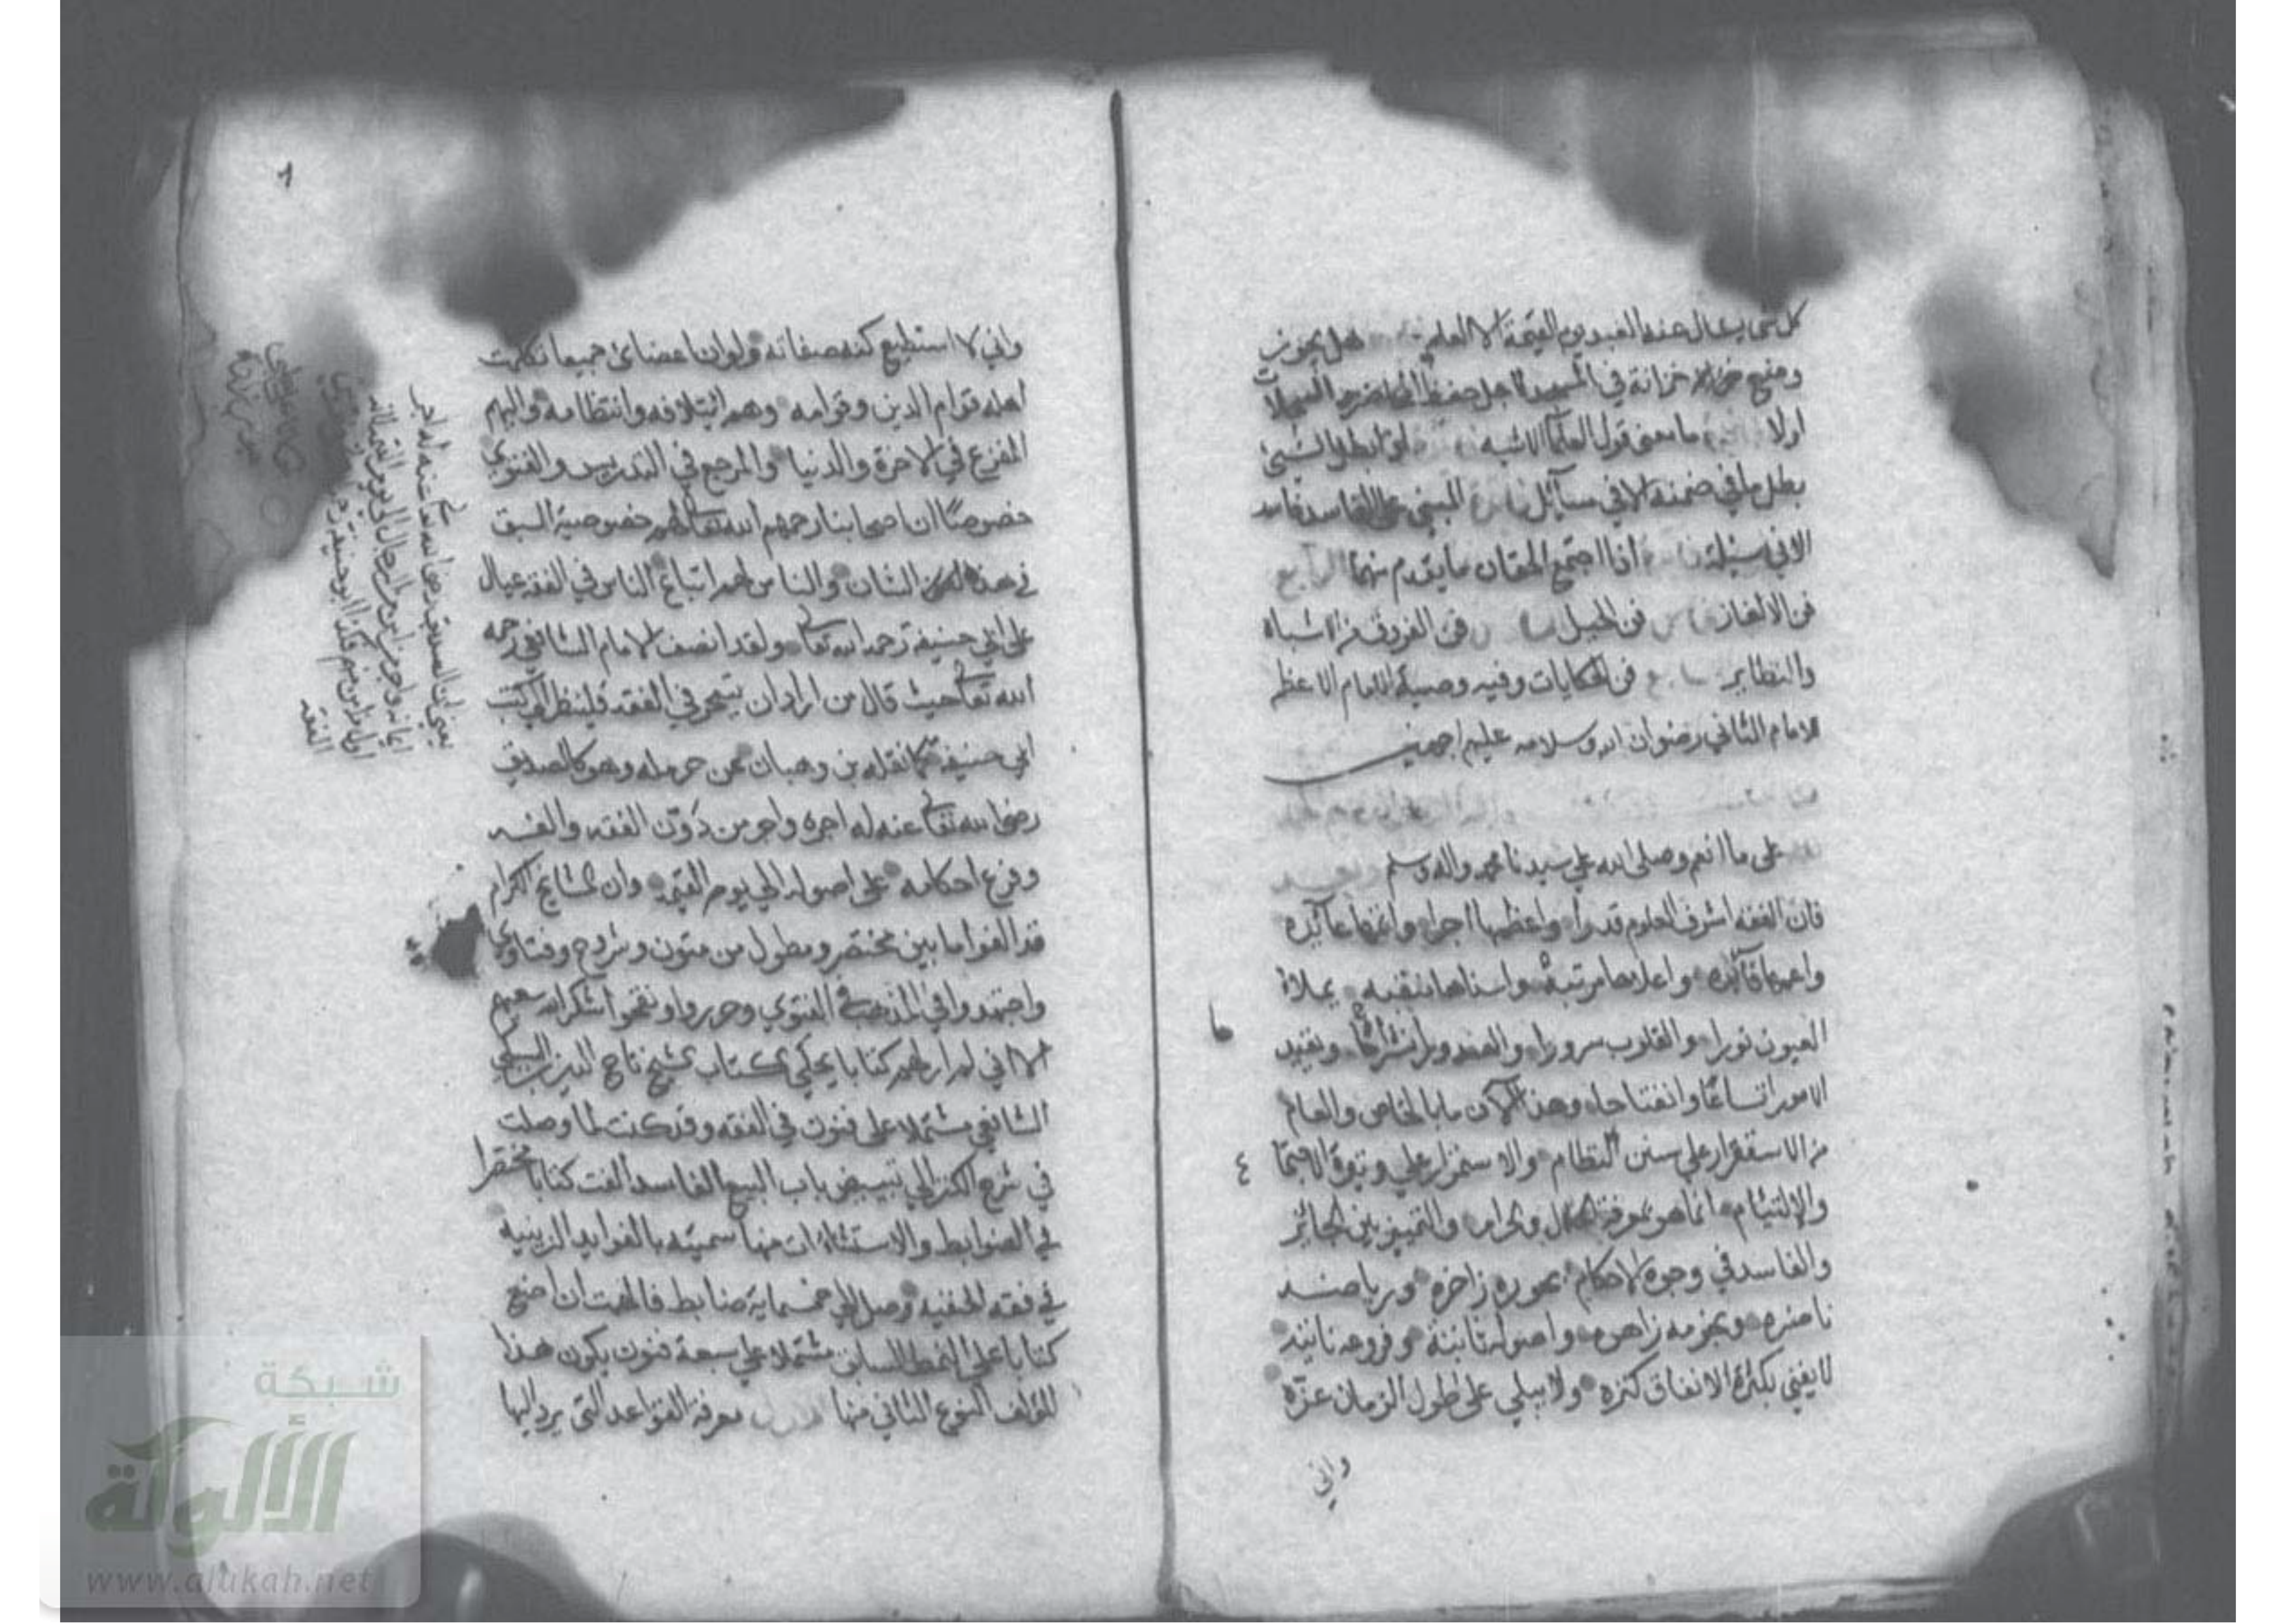 كل شي يسال عنه العبد يوم القيمة الا العلم هل يجوز
ومنع خزانة في المسجد لاجل حفظ المحاضر والسجلات
اولا ما معنى قول العلما الاشبه اذا بطل الشيئ
بطل ما في ضمنه الا في مسآئل المبني على الفاسد فاسد
الا في مسئلة اذا اجتمع الحقان ما يقدم منهما الرابع
فن الالغاز فن الحيل فن الفروق من الاشباه
والنظاير فن الحكايات وفيه وصية الامام الاعظم
للامام الثاني رضوان الله وسلامه عليهم اجمعين
على ما انعم وصلى الله علي سيدنا محمد واله وسلم وبعد
فان الفقه اشرف العلوم قدرا واعظمها اجرا واتمها عآئدة
واعمها فآئدة واعلاها مرتبة واسناها منقبه يملاء
العيون نورا والقلوب سرورا والصدور انشراحًا ويفيد
الامور اتساعًا وانفتاحا وهذا لان ما بالخاص والعام
من الاستقرار علي سنن النظام والاستمرار علي وتيرة الاجتماع
والالتيئام انما هو بمعرفة الحلال والحرام والتمييز بين الجائز
والفاسد في وجوه الاحكام بحوره زاخره ورياضه
ناضره ونجومه زاهره واصوله ثابتة وفروعه نابتة
لا يفني بكثرة الانفاق كنزه ولا يبلي على طول الزمان عزّه
واني
واني لا استطيع كنه صفاته ولوان اعضائ جميعا تكلمت
اهله قوام الدين وقوامه وهم ائتلافه وانتظامه واليهم
المفزع في الاخرة والدنيا والمرجع في التدريس والفتوي
خصوصًا ان اصحابنا رحمهم الله تعالى لهم خصوصية السبق
في هذا الشان والناس لهم اتباع الناس في الفقه عيال
على ابي حنيفة رحمه الله تعالى ولقد انصف الامام الشافعي رحمه
الله تعالى حيث قال من اراد ان يتبحر في الفقه فلينظر الي كتب
ابي حنيفة كما نقله بن وهبان عن حرمله وهو كالصديق
رضي الله تعالى عنه له اجره واجر من دَوّن الفقه والفه
وفرع احكامه على اصوله الي يوم القيمة وان المشايخ الكرام
قد الفوا ما بين مختصر ومطول من متون وشروح وفتاوي
واجتهدوا في المذهب والفتوي وحرروا ونقحوا شكر الله سعيهم
الا اني لم ار لهم كتابا يحكي كتاب الشيخ تاج الدين السبكي
الشافعي مشتملا على فنون في الفقه وقد كنت لما وصلت
في شرح الكنز الي تبييض باب البيع الفاسد الفت كتابا مختصرا
في الضوابط والاستثنآات منها سميته بالفوايد الزينيه
في فقه الحنفيه وصل الي خمسماية ضابط فالهمت ان اضع
كتابا على النمط السابق مشتملا علي سبعة فنون يكون هذا
المؤلف النوع الثاني منها الاول معرفة القواعد التي يرد اليها
يعني ان الصديق رضي الله تعالى عنه له اجر
ايمانه واجر من امن من الرجال الي يوم القيمة لانه
اول من امن منهم فكذا ابو حنيفة
الفقه
شبكة
الألوكة
www.alukah.net